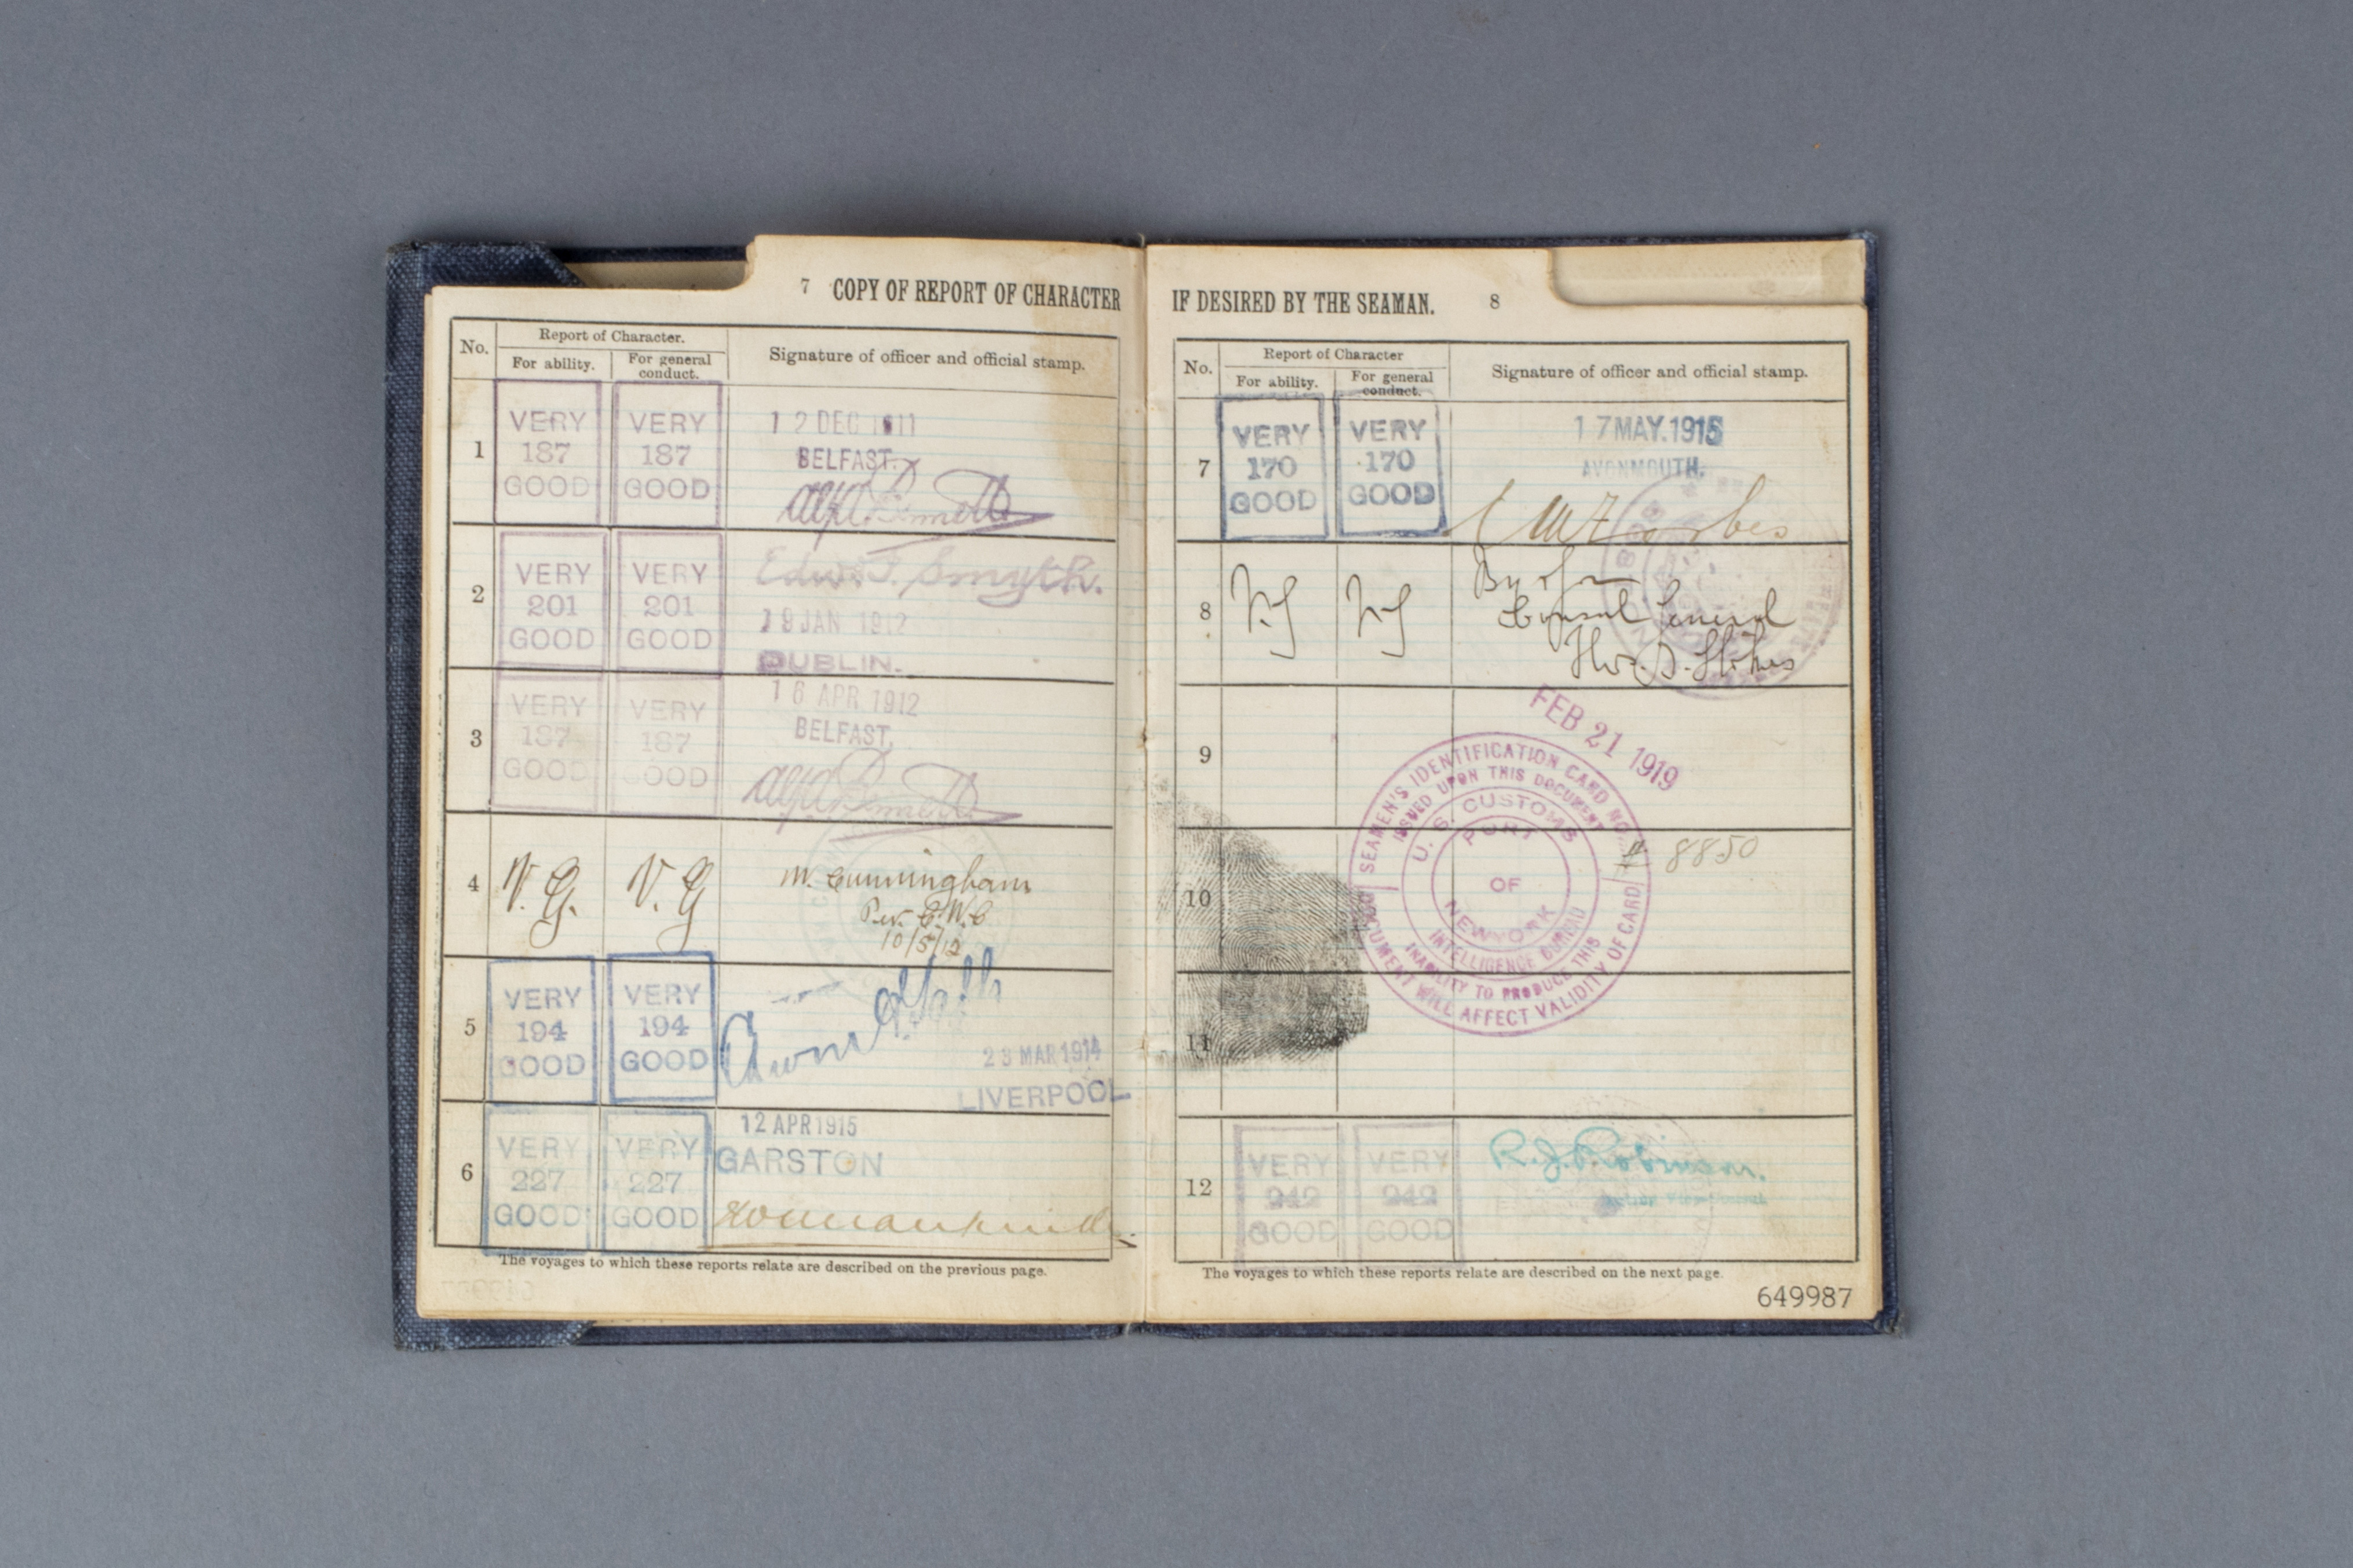 7 COPY OF REPORT OF CHARACTER
No.
Report of Character.
For ability.
For general conduct.
Signature of officer and official stamp.
1
VERY 187 GOOD
VERY 187 GOOD
12 DEC 1911
BELFAST.
2
VERY 201 GOOD
VERY 201 GOOD
Edw. T. Smyth.
19 JAN 1912
DUBLIN.
3
VERY 187 GOOD
VERY 187 GOOD
16 APR 1912
BELFAST.
4
V. G.
V. G
M. Cunningham
Per. C.W.C
10/5/12
5
VERY 194 GOOD
VERY 194 GOOD
23 MAR 1914
LIVERPOOL
6
VERY 227 GOOD
VERY 227 GOOD
12 APR 1915
GARSTON
The voyages to which these reports relate are described on the previous page.
IF DESIRED BY THE SEAMAN. 8
No.
Report of Character
For ability.
For general conduct.
Signature of officer and official stamp.
7
VERY 170 GOOD
VERY 170 GOOD
17 MAY. 1915
AVONMOUTH.
8
Consul General
9
FEB 21 1919
SEAMEN'S IDENTIFICATION CARD NO.
ISSUED UPON THIS DOCUMENT
U. S. CUSTOMS
PORT
OF
NEW YORK
INTELLIGENCE BUREAU
INABILITY TO PRODUCE THIS
DOCUMENT WILL AFFECT VALIDITY OF CARD
# 8850
10
11
12
VERY 242 GOOD
VERY 242 GOOD
R. J. Robinson.
The voyages to which these reports relate are described on the next page.
649987